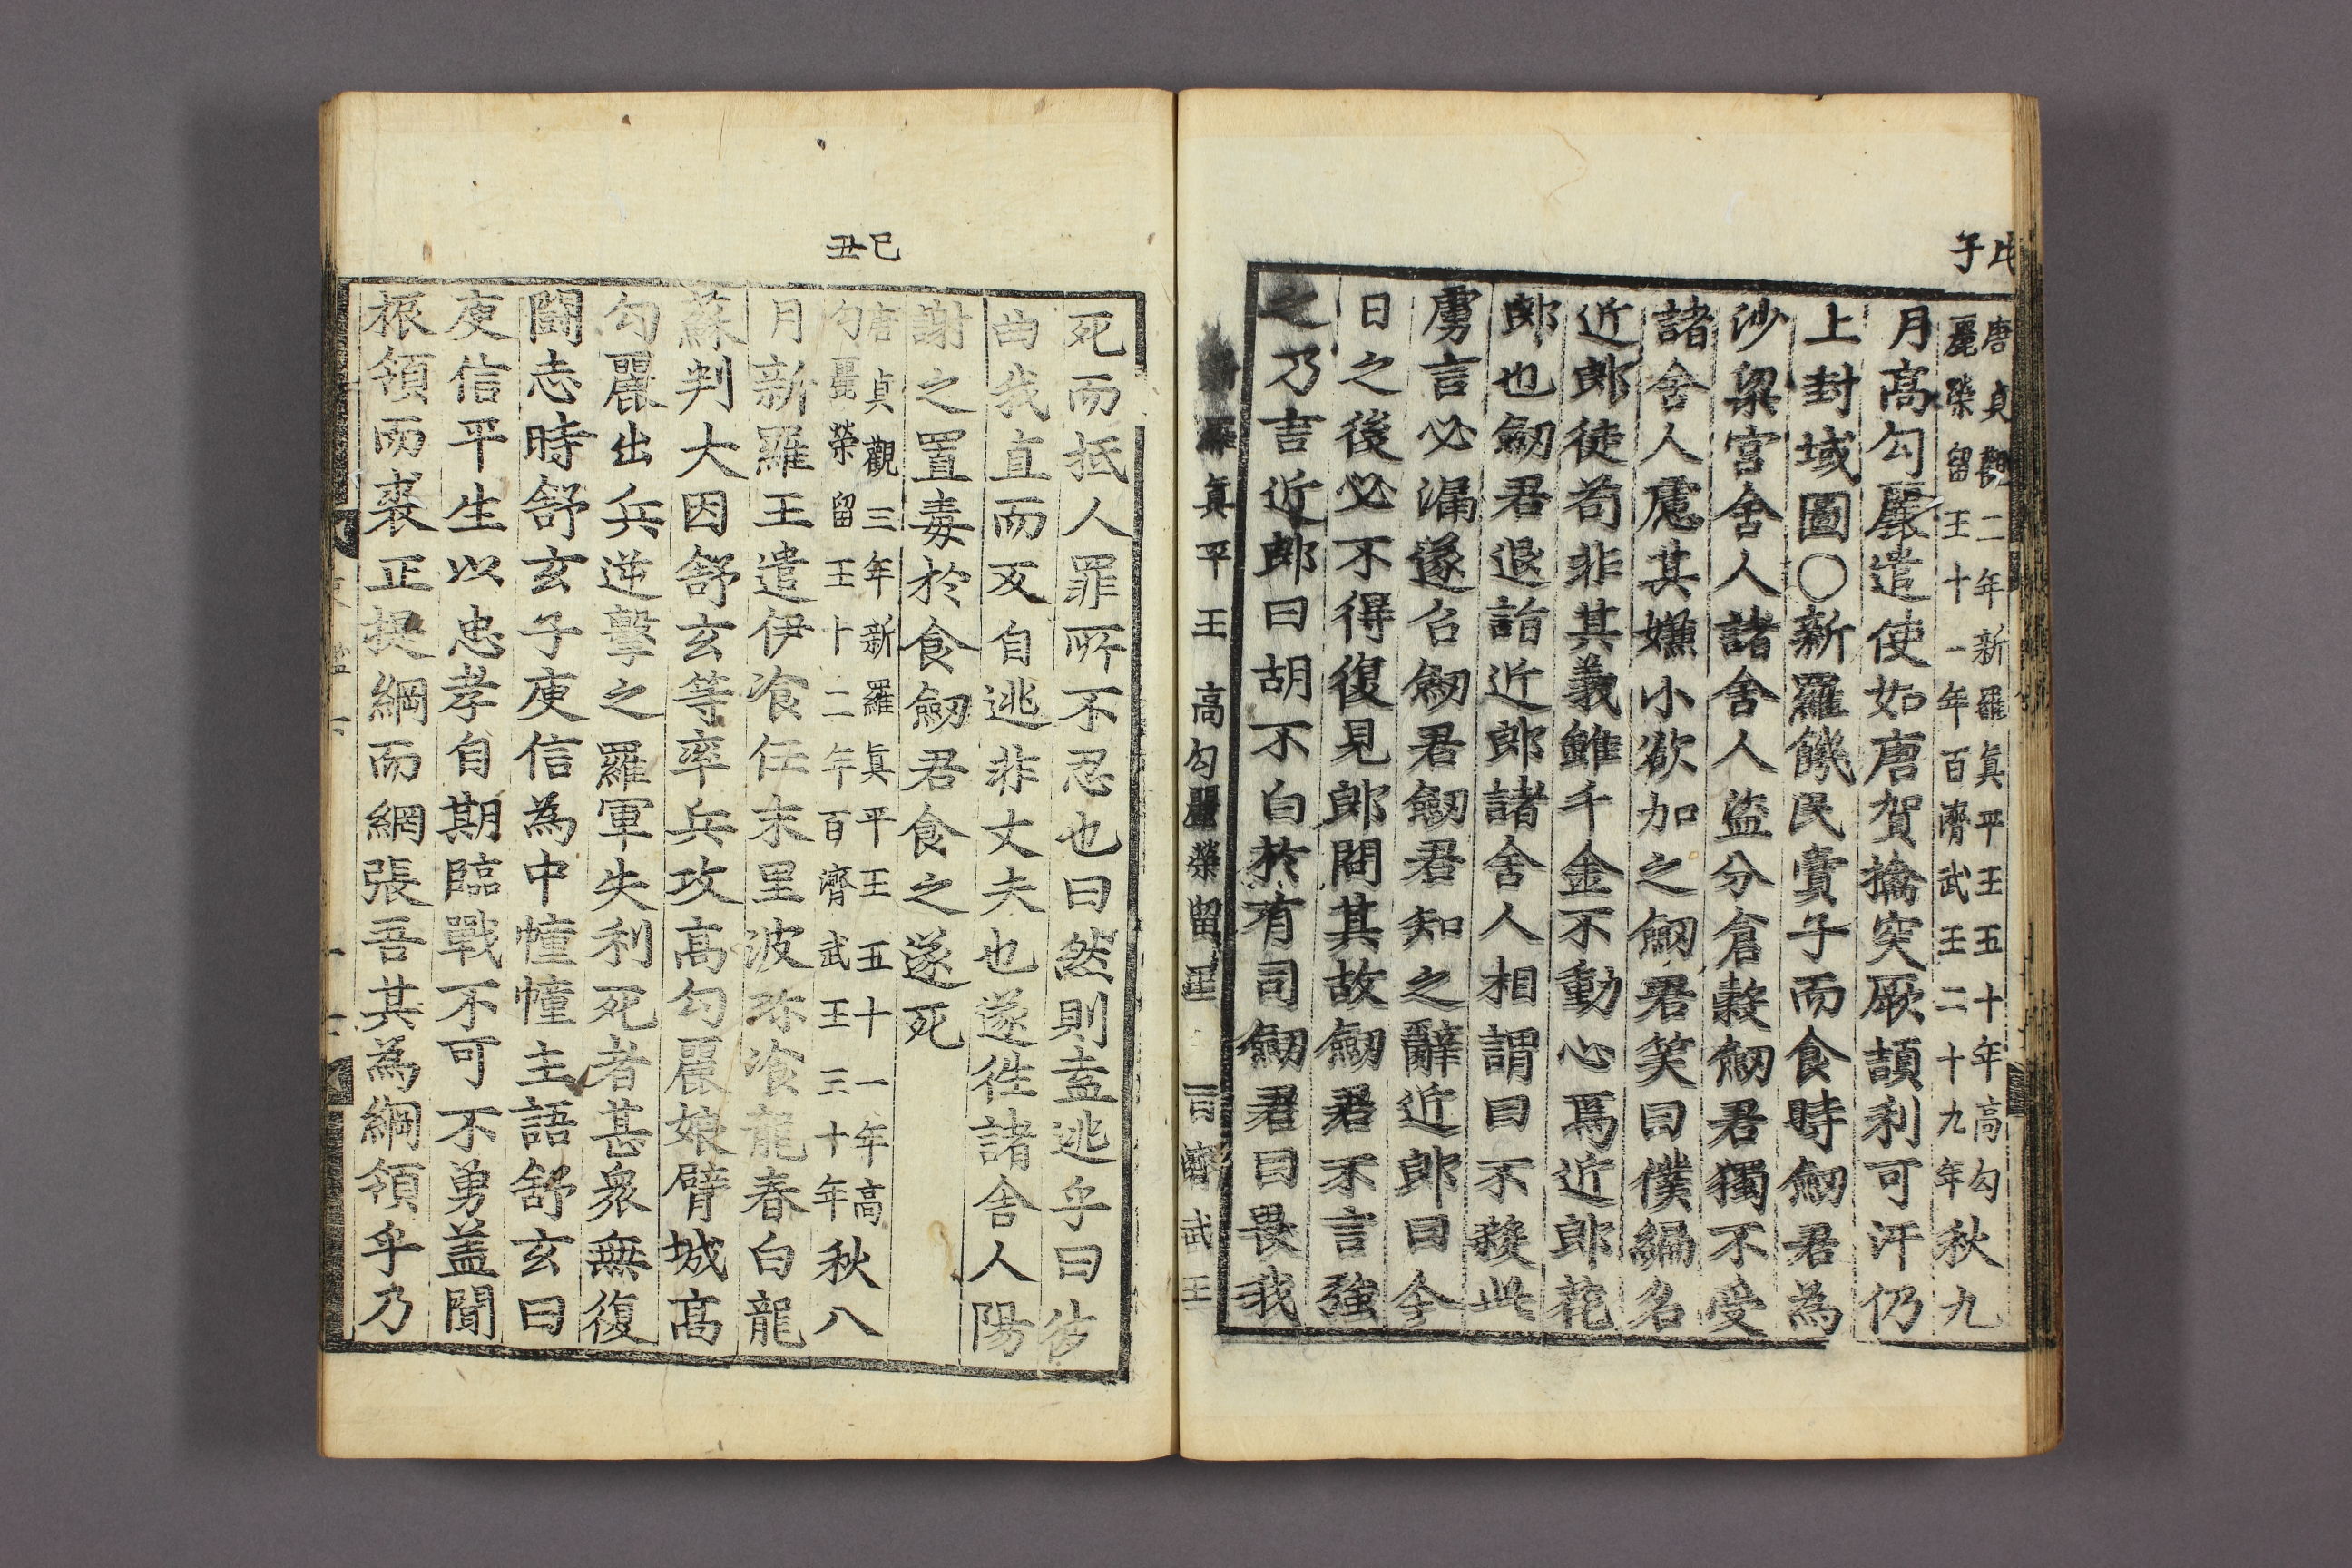 戊子
唐貞觀二年新羅眞平王五十年高勾
麗榮留王十一年百濟武王二十九年秋九
月高勾麗遣使如唐賀擒突厥頡利可汗仍
上封域圖○新羅饑民賣子而食時劒君為
沙梁宮舍人諸舍人盜分倉穀劒君獨不受
諸舍人慮其嫌小欲加之劒君笑曰僕編名
近郞徒苟非其義雖千金不動心焉近郞花
郞也劒君退詣近郞諸舍人相謂曰不殺此
虜言必漏遂召劒君劒君知之辭近郞曰今
日之後必不得復見郞問其故劒君不言強
之乃言近郞曰胡不白於有司劒君曰畏我
新羅眞平王 高勾麗榮留王 百濟武王
死而抵人罪所不忍也曰然則盍逃乎曰彼
曲我直而反自逃非丈夫也遂徃諸舍人陽
謝之置毒於食劒君食之遂死
己丑
唐貞觀三年新羅眞平王五十一年高
勾麗榮留王十二年百濟武王三十年秋八
月新羅王遣伊飡任末里波珎飡龍春白龍
蘇判大因舒玄等率兵攻高勾麗娘臂城高
勾麗出兵逆擊之羅軍失利死者甚衆無復
鬪志時舒玄子庾信為中幢幢主語舒玄曰
庾信平生以忠孝自期臨戰不可不勇盖聞
振領而裘正提綱而網張吾其為綱領乎乃